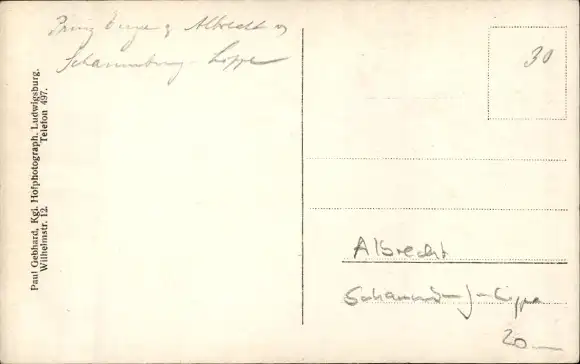 Prinz Eugen & Albrecht v
Schaumburg-Lippe
Paul Gebhard, Kgl. Hofphotograph, Ludwigsburg.
Wilhelmstr. 12. Telefon 497.
30
Albrecht
Schaumburg-Lippe
20 —